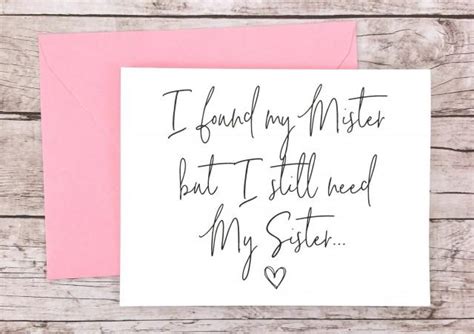 I found my Mister
but I still need
My Sister...